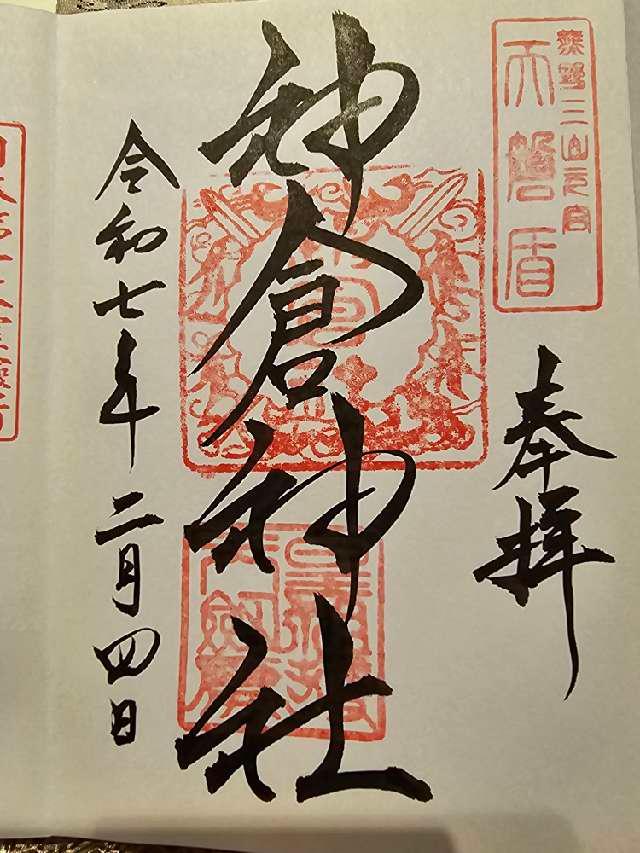 熊野三山元宮
天磐盾
奉拝
神倉神社
令和七年二月四日